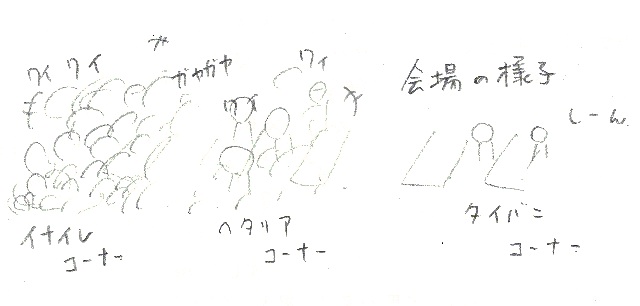 会場の様子
ワイ ワイ
ガヤガヤ
ワイ
ワイ
しーん
イナイレ
コーナー
ヘタリア
コーナー
タイバニ
コーナー